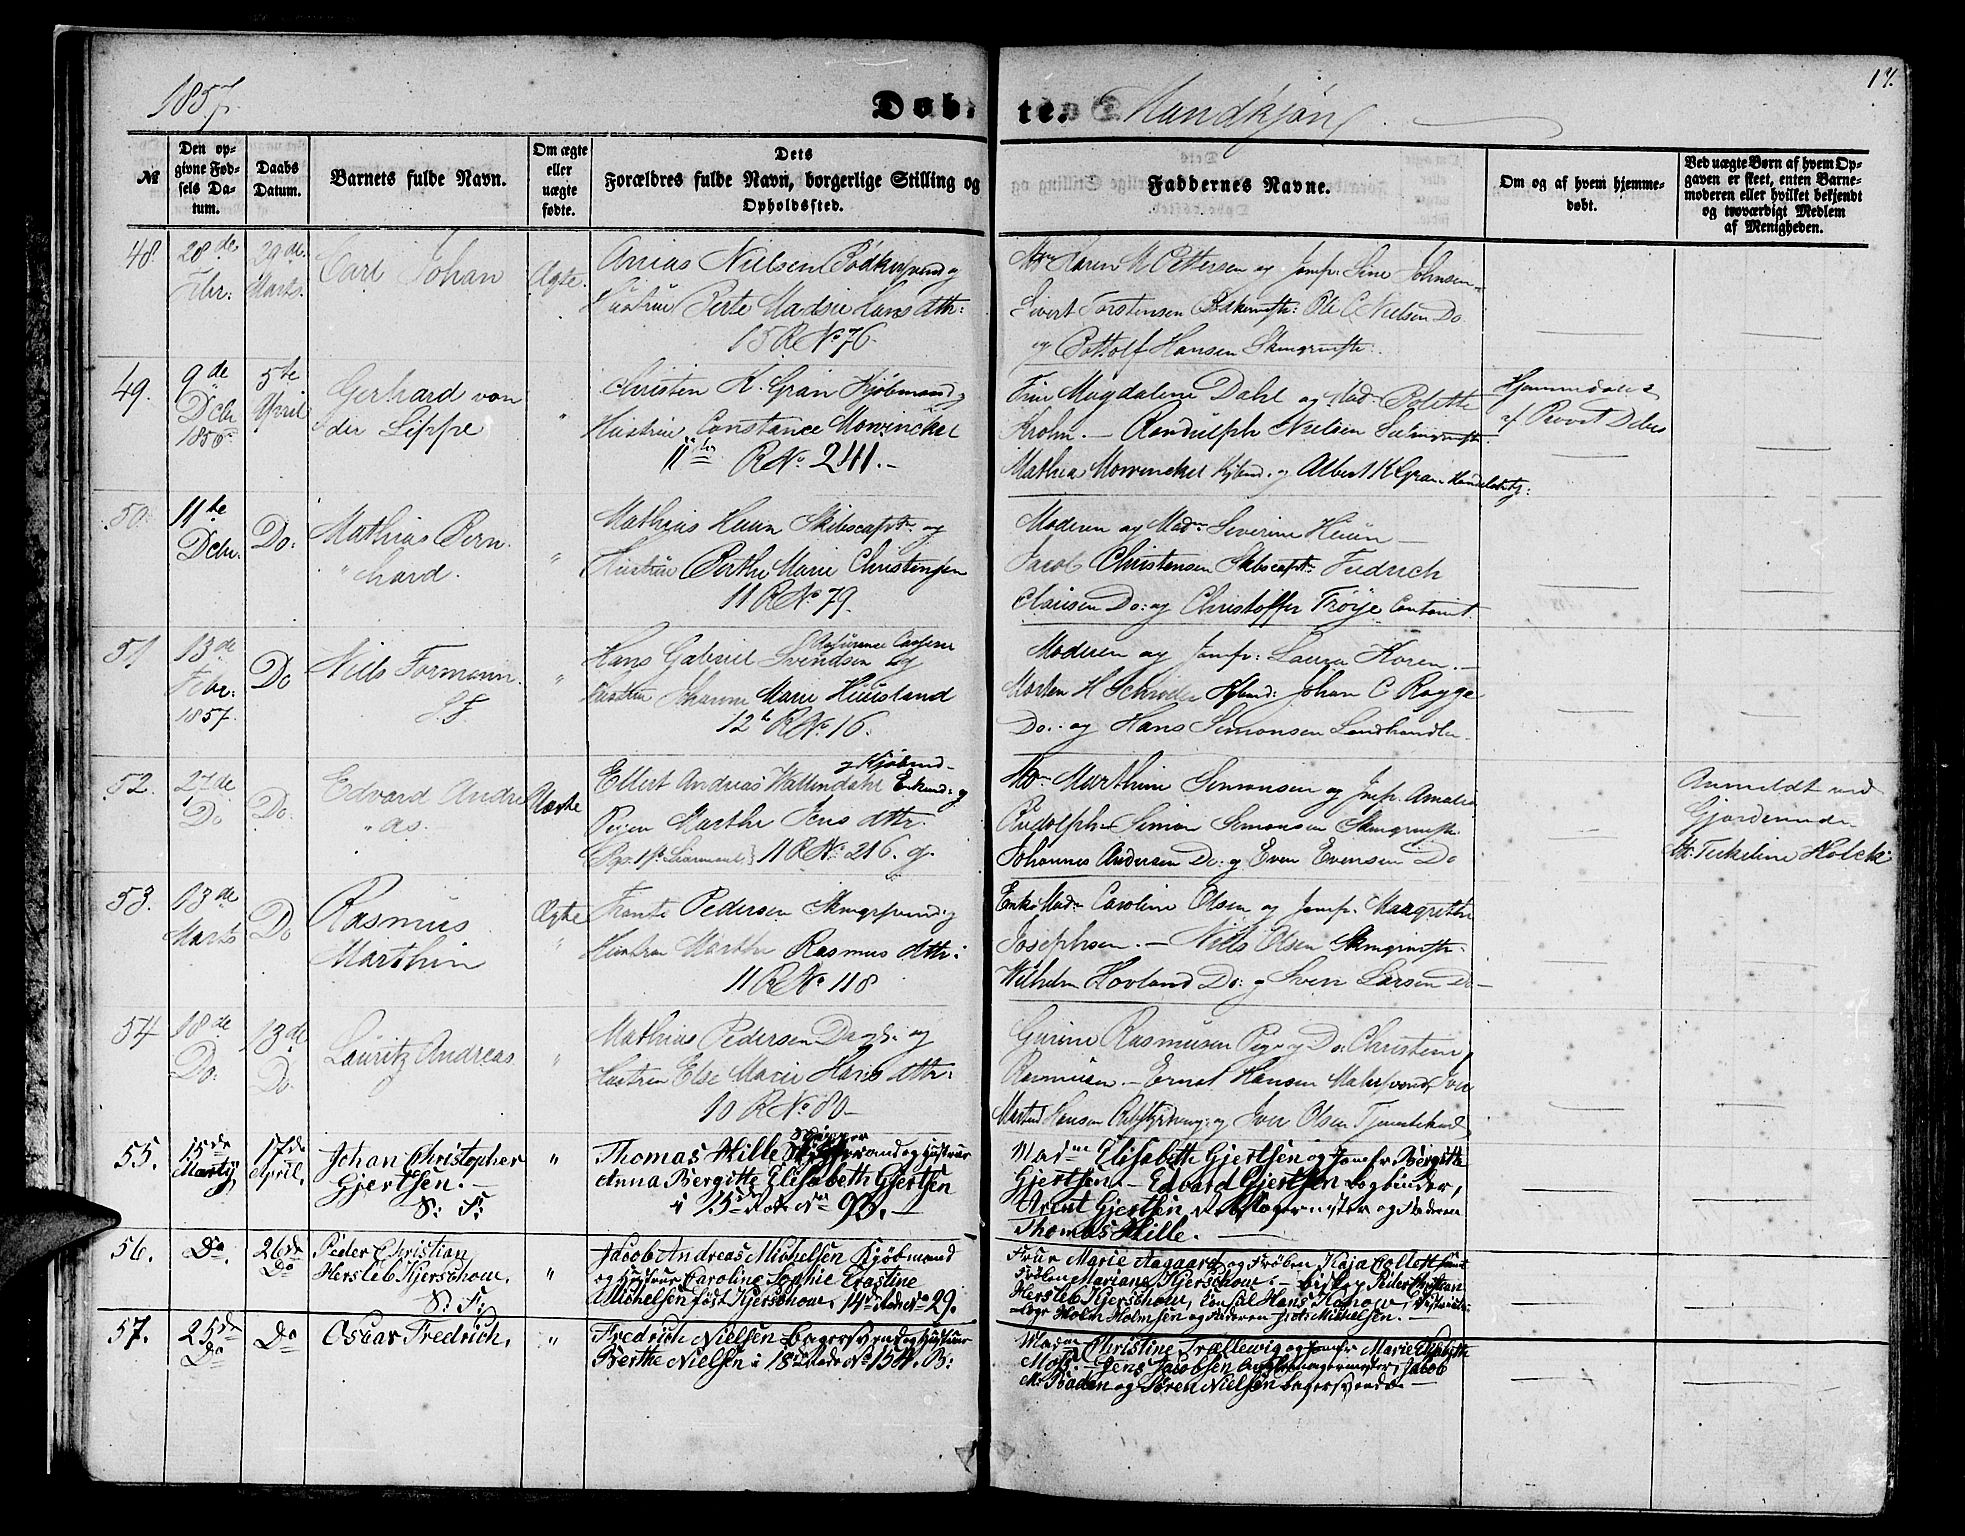 1857.
Døbte. Mandkjøn
17.
№
Den opgivne Fødsels Datum.
Daabs Datum.
Barnets fulde Navn.
Om ægte eller uægte fødte.
Dets Forældres fulde Navn, borgerlige Stilling og Opholdssted.
Faddernes Navne.
Om og af hvem hjemmedøbt.
Ved uægte Børn af hvem Opgaven er skeet, enten Barnemoderen eller hvilket bekjendt og troværdigt Medlem af Menigheden.
48. 28de Febr: 29de Marts. Carl Johan Ægte.
Anias Nielsen Bødkersvend og
Hustrue Berte Madsie Hans dtr:
15 R No 76.
Karen M Pettersen og Jomfr: Sine Johnsen
Sivert Torstensen Bødkermstr: Ole C. Nielsen Do
og Hansen Skmgrmstr:
49. 9de Debr 1856. 5te April Gerhard von der Lippe "
Christen K. Gran Kjøbmand og
Hustrue Constance Mowinckel
11te R No. 241.-
Frue Magdalene Dahl og Mad: Bolette
Krohn. - Randulph Nielsen
Mathias Mowinckel Kjbmd: og Albert K Gran Handelsbetj:
Hjemmedøbt
af Provst
50. 11te Debr. Do: Mathias Bernhard. "
Mathias Heun Skibscapt: og
Hustrue Berthe Marie Christensen
11 R No. 79.
Moderen og Mad: Severine Heün -
Jacob Christensen Skbscapt: Fredrich
Clausen Do: og Christoffer Trøye Contorist
51. 13de Febr: 1857. Do Niels Formann. S.F. "
Hans Gabriel Svendsen og
Hustrue Johanne Marie Huusland
12te R No. 16.
Moderen og Jomfr: Laura Koren. -
Morten H Schrøder Kjbmd: Johan C Rogge
Do. og Hans Simonsen Landhandler
52. 27de Do Do. Edvard Andreas. Uægte
og Kjøbmd
Ellert Andreas Wallendahl Enkmd: og
Pigen Marthe Jens dttr.
11 R No. 216. g.
Marthine Simonsen og Jmfr. Amalia
Rudolph Simon Simonsen Skmgrmstr.
Johannes Andersen Do: og Even Evensen Do
Anmeldt ved
Gjordemoder
Terkeline Holck.
53. 13de Marts Do Rasmus Marthin Ægte
Pedersen Skmgrsvend og
Hustrue Marthe Rasmus dtr:
11 R No 118
Enke Mad: Caroline Olsen og Jomfr. Margrethe
Josephsen. - Niels Olsen Skmgrmstr.
Wilhelm Hovland Do: og Sven Larsen Do -
54 18de Do: 13de Do Lauritz Andreas "
Mathias Pedersen Dagk. og
Hustrue Else Marie Hans dttr:
10 R No 80-
Gurine Rasmusen Pige og Do: Christine
Rasmusen - Ernst Hansen Malersvend,
Hansen og Iver Olsen Tjenestekarl
55. 15de Martz, 17de April. Johan Christopher Gjertsen. - S: F: "
Skipper
Thomas Hille og Hustrue
Anna Bergitte Elisabeth Gjertsen
i 15de Rode No 93. -
Madme Elisabeth Gjertsen og Jomfr Bergitte
Gjertsen. - Edvard Gjertsen Bogbinder,
Arent Gjertsen, og Faderen
Thomas Hille.
56. Do. 26de Do Peder Christian Hersleb Kjerschow. S: F: "
Jacob Andreas Michelsen Kjøbmand
og Hustrue Caroline Sophie Erastine
Michelsen født Kjerschow. 14de Rode No 29.
Frue Marie Aagaard og Frøken Kaja Collett samt
Frøken Mariane Kjerschow. - Biskop Peder Christian
Hersleb Kjerschow, Consul Hans Konow,
Holm Holmsen og Faderen Jacob Michelsen. -
57. 25de Do Do Oscar Fredrich. "
Fredrich Nielsen Bagersvend og Hustrue
Berthe Nielsen i 18de Rode No 154. B:
Madme Christine Trællewig og Jomfr Marie Elisabeth
Moss. - Jens Jacobsen Jacob
M: Baden og Søren Nielsen Bagersvende -